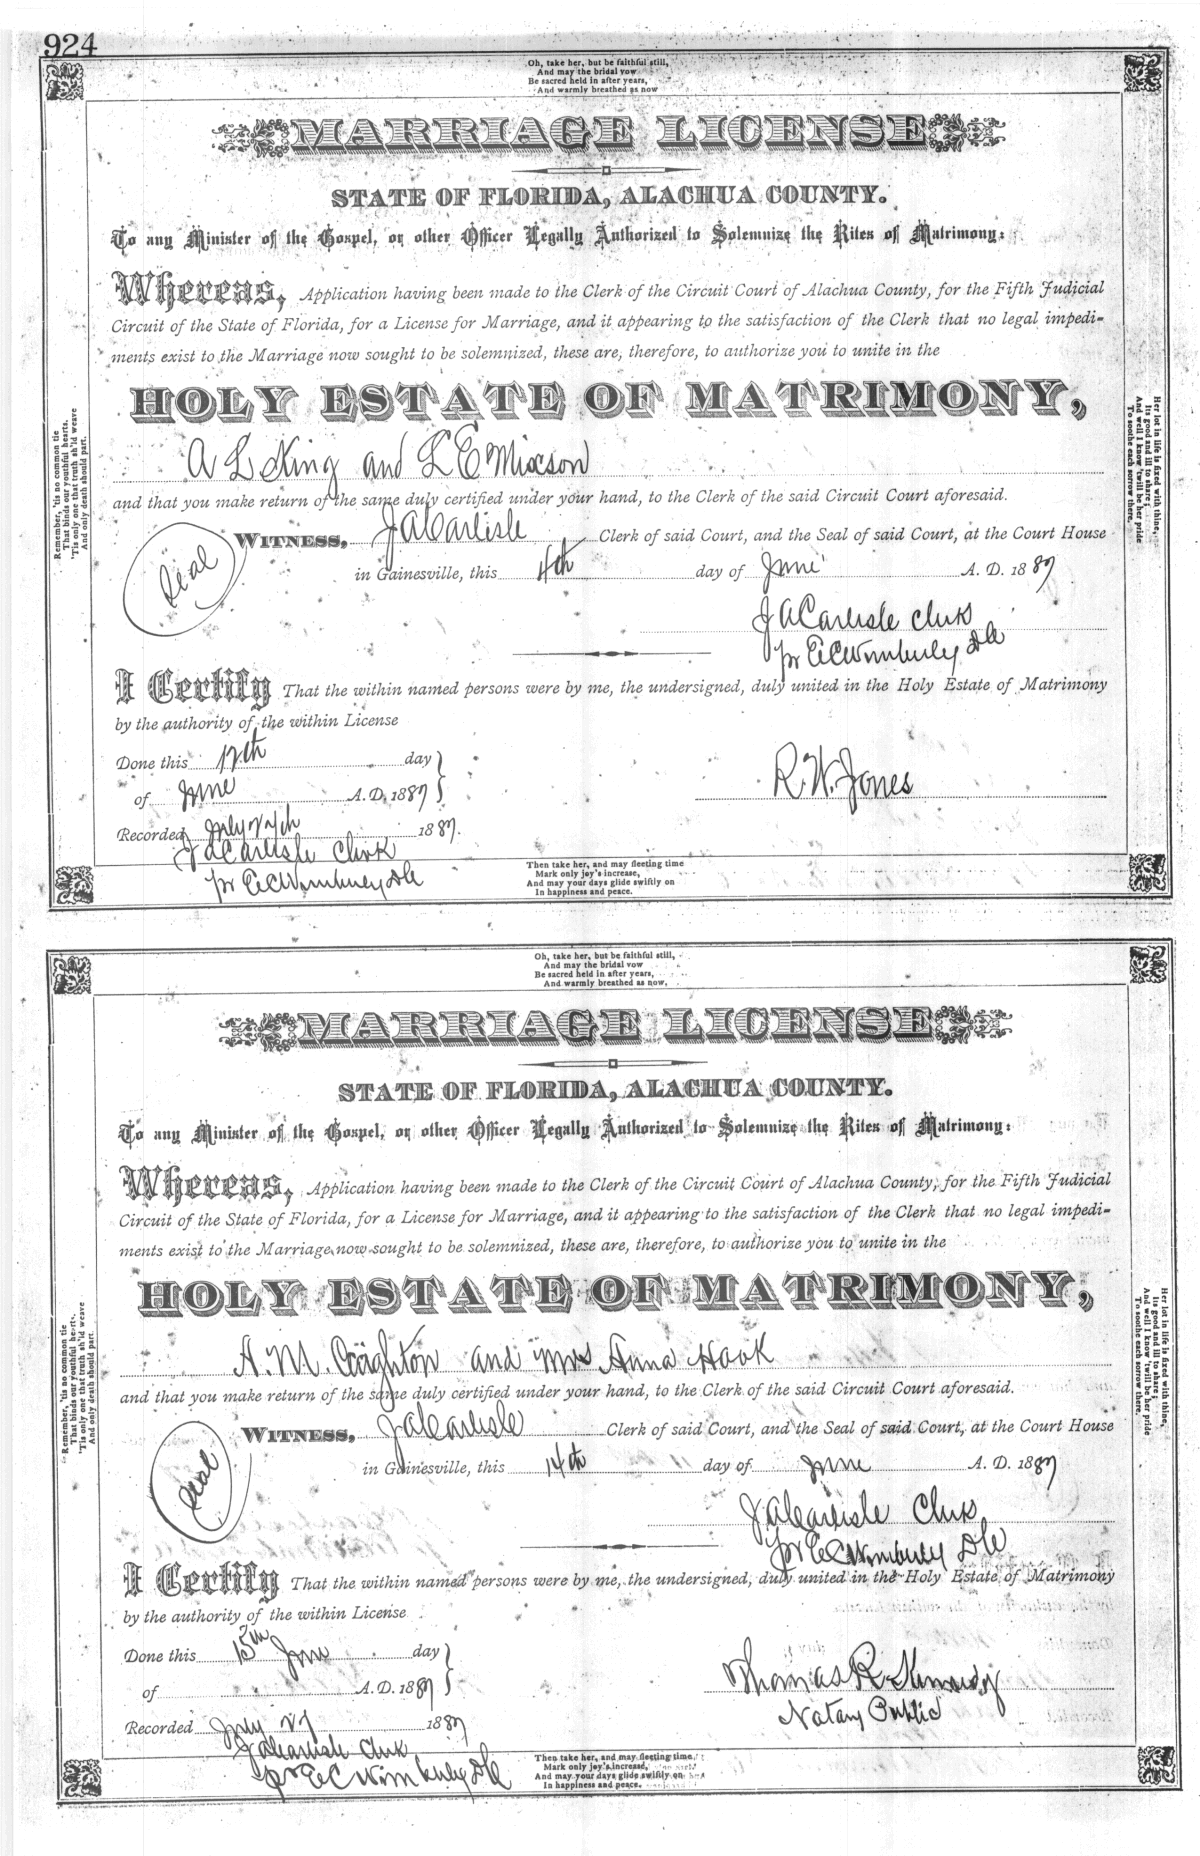 924
Oh, take her, but be faithful still,
And may the bridal vow
Be sacred held in after years,
And warmly breathed as now
MARRIAGE LICENSE
STATE OF FLORIDA, ALACHUA COUNTY.
To any Minister of the Gospel, or other Officer Legally Authorized to Solemnize the Rites of Matrimony:
Whereas, Application having been made to the Clerk of the Circuit Court of Alachua County, for the Fifth Judicial
Circuit of the State of Florida, for a License for Marriage, and it appearing to the satisfaction of the Clerk that no legal impedi-
ments exist to the Marriage now sought to be solemnized, these are, therefore, to authorize you to unite in the
HOLY ESTATE OF MATRIMONY,
A L King and L E Mixson
and that you make return of the same duly certified under your hand, to the Clerk of the said Circuit Court aforesaid.
Seal
WITNESS, J A Carlisle Clerk of said Court, and the Seal of said Court, at the Court House
in Gainesville, this 4th day of June A. D. 1887
J A Carlisle Clerk
pr E C Wimberley D C
I Certify That the within named persons were by me, the undersigned, duly united in the Holy Estate of Matrimony
by the authority of the within License
Done this 12th day
of June A. D. 1887
R. W. Jones
Recorded July 27th 1887.
J A Carlisle Clerk
pr E C Wimberley D C
Remember, 'tis no common tie
That binds our youthful hearts.
'Tis only one that truth sh'ld weave
And only death should part.
Her lot in life is fixed with thine,
Its good and ill to share;
And well I know 'twill be her pride
To soothe each sorrow there.
Then take her, and may fleeting time
Mark only joy's increase,
And may your days glide swiftly on
In happiness and peace.
Oh, take her, but be faithful still,
And may the bridal vow
Be sacred held in after years,
And warmly breathed as now.
MARRIAGE LICENSE
STATE OF FLORIDA, ALACHUA COUNTY.
To any Minister of the Gospel, or other Officer Legally Authorized to Solemnize the Rites of Matrimony:
Whereas, Application having been made to the Clerk of the Circuit Court of Alachua County, for the Fifth Judicial
Circuit of the State of Florida, for a License for Marriage, and it appearing to the satisfaction of the Clerk that no legal impedi-
ments exist to the Marriage now sought to be solemnized, these are, therefore, to authorize you to unite in the
HOLY ESTATE OF MATRIMONY,
A. M. and Mrs Anna Hook
and that you make return of the same duly certified under your hand, to the Clerk of the said Circuit Court aforesaid.
Seal
WITNESS, J A Carlisle Clerk of said Court, and the Seal of said Court, at the Court House
in Gainesville, this 14th day of June A. D. 1887
J A Carlisle Clerk
pr E C Wimberley D C
I Certify That the within named persons were by me, the undersigned, duly united in the Holy Estate of Matrimony
by the authority of the within License
Done this 15th June day
of A. D. 1887
Thomas R
Notary Public
Recorded July 27 1887
J A Carlisle Clerk
pr E C Wimberley D C
Remember, 'tis no common tie
That binds our youthful hearts.
'Tis only one that truth sh'ld weave
And only death should part.
Her lot in life is fixed with thine,
Its good and ill to share;
And well I know 'twill be her pride
To soothe each sorrow there.
Then take her, and may fleeting time
Mark only joy's increase,
And may your days glide swiftly on
In happiness and peace.